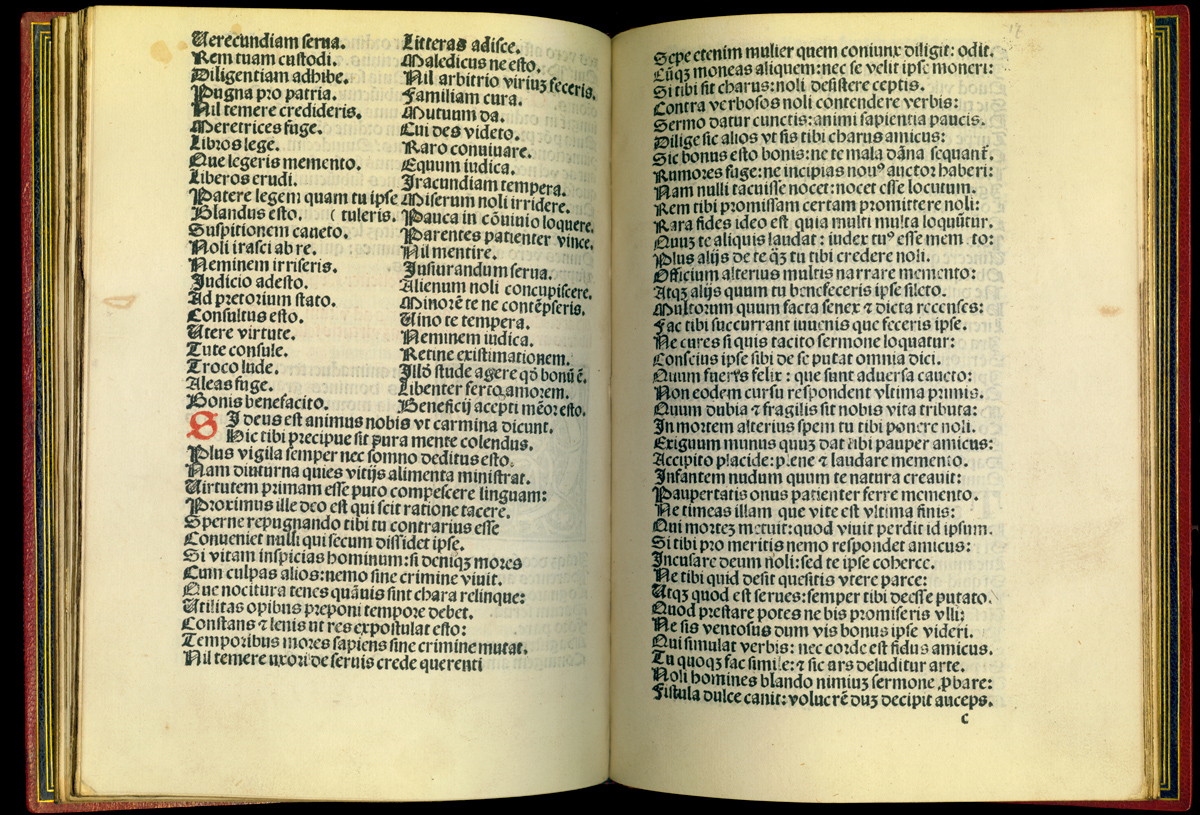 Uerecundiam serua.
Rem tuam custodi.
Diligentiam adhibe.
Pugna pro patria.
Nil temere credideris.
Meretrices fuge.
Libros lege.
Que legeris memento.
Liberos erudi.
Patere legem quam tu ipse
Blandus esto. ( tuleris.
Suspitionem caueto.
Noli irasci ab re.
Neminem irriseris.
Judicio adesto.
Ad pretorium stato.
Consultus esto.
Utere virtute.
Tute consule.
Troco lude.
Aleas fuge.
Bonis benefacito.
Litteras adisce.
Maledicus ne esto.
Nil arbitrio viriuʒ feceris.
Familiam cura.
Mutuum da.
Cui des videto.
Raro conuiuare.
Equum iudica.
Iracundiam tempera.
Miserum noli irridere.
Pauca in cōuiuio loquere.
Parentes patienter vince.
Nil mentire.
Iusiurandum serua.
Alienum noli concupiscere.
Minorē te ne contēpseris.
Uino te tempera.
Neminem iudica.
Retine existimationem.
Illō stude agere qō bonū ē.
Libenter ferto amorem.
Beneficij accepti mēor esto.
SI deus est animus nobis vt carmina dicunt.
Hic tibi precipue sit pura mente colendus.
Plus vigila semper nec somno deditus esto.
Nam diuturna quies vitijs alimenta ministrat.
Uirtutem primam esse puto compescere linguam:
Proximus ille deo est qui scit ratione tacere.
Sperne repugnando tibi tu contrarius esse
Conueniet nulli qui secum dissidet ipse.
Si vitam inspicias hominum: si deniqʒ mores
Cum culpas alios: nemo sine crimine viuit.
Que nocitura tenes quāuis sint chara relinque:
Utilitas opibus preponi tempore debet.
Constans ⁊ lenis ut res expostulat esto:
Temporibus mores sapiens sine crimine mutat.
Nil temere uxori de seruis crede querenti
17
Sepe etenim mulier quem coniunx diligit: odit.
Cūqʒ moneas aliquem: nec se velit ipse moneri:
Si tibi sit charus: noli desistere ceptis.
Contra verbosos noli contendere verbis:
Sermo datur cunctis: animi sapientia paucis.
Dilige sic alios vt sis tibi charus amicus:
Sic bonus esto bonis: ne te mala dāna sequant̄.
Rumores fuge: ne incipias nouꝰ auctor haberi:
Nam nulli tacuisse nocet: nocet esse locutum.
Rem tibi promissam certam promittere noli:
Rara fides ideo est quia multi multa loquūtur.
Quuʒ te aliquis laudat: iudex tuꝰ esse memēto:
Plus alijs de te qʒ̄ tu tibi credere noli.
Officium alterius multis narrare memento:
Atqʒ alijs quum tu benefeceris ipse sileto.
Multorum quum facta senex ⁊ dicta recenses:
Fac tibi succurrant iuuenis que feceris ipse.
Ne cures si quis tacito sermone loquatur:
Conscius ipse sibi de se putat omnia dici.
Quum fueris felix: que sunt aduersa caueto:
Non eodem cursu respondent vltima primis.
Quum dubia ⁊ fragilis sit nobis vita tributa:
In mortem alterius spem tu tibi ponere noli.
Exiguum munus quuʒ dat tibi pauper amicus:
Accipito placide: plene ⁊ laudare memento.
Infantem nudum quum te natura creauit:
Paupertatis onus patienter ferre memento.
Ne timeas illam que vite est vltima finis:
Qui morteʒ metuit: quod viuit perdit id ipsum.
Si tibi pro meritis nemo respondet amicus:
Incusare deum noli: sed te ipse coherce.
Ne tibi quid desit quesitis vtere parce:
Utqʒ quod est serues: semper tibi deesse putato.
Quod prestare potes ne bis promiseris vlli:
Ne sis ventosus dum vis bonus ipse videri.
Qui simulat verbis: nec corde est fidus amicus.
Tu quoqʒ fac simile: ⁊ sic ars deluditur arte.
Noli homines blando nimiuʒ sermone ꝓbare:
Fistula dulce canit: volucrē duʒ decipit auceps.
c